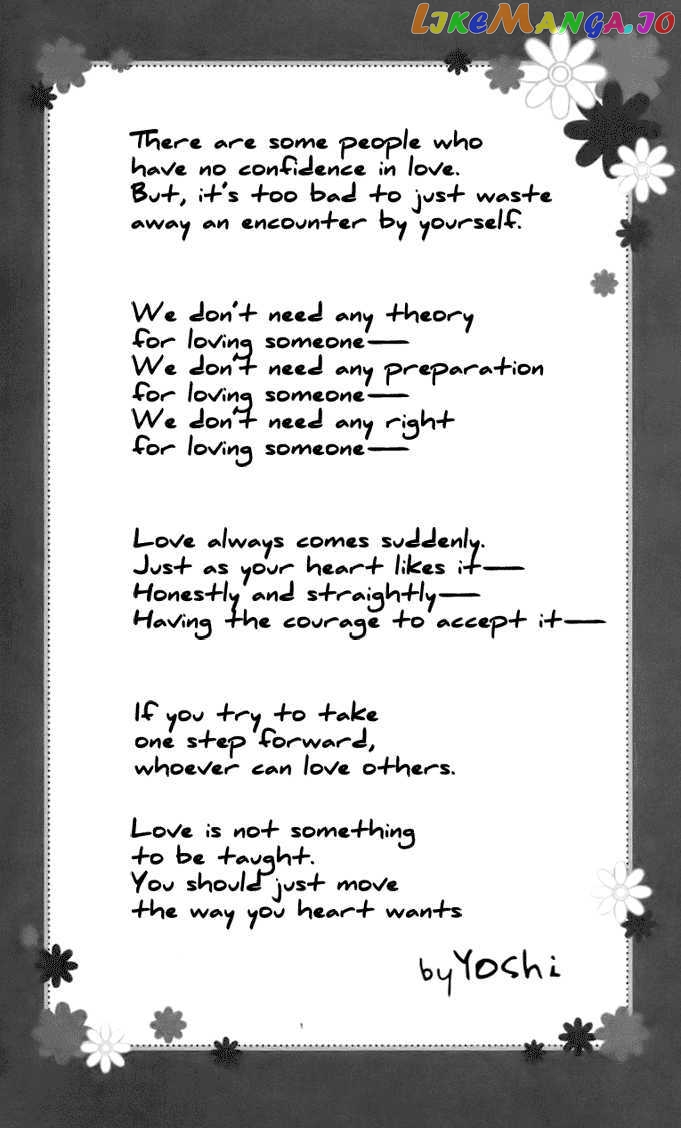 LIKEMANGA.IO
There are some people who
have no confidence in love.
But, it's too bad to just waste
away an encounter by yourself.
We don't need any theory
for loving someone—
We don't need any preparation
for loving someone—
We don't need any right
for loving someone—
Love always comes suddenly.
Just as your heart likes it—
Honestly and straightly—
Having the courage to accept it—
If you try to take
one step forward,
whoever can love others.
Love is not something
to be taught.
You should just move
the way you heart wants
by Yoshi